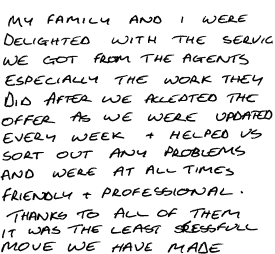 MY FAMILY AND I WERE
DELIGHTED WITH THE SERVIC
WE GOT FROM THE AGENTS
ESPECIALLY THE WORK THEY
DID AFTER WE ACCEPTED THE
OFFER AS WE WERE UPDATED
EVERY WEEK + HELPED US
SORT OUT ANY PROBLEMS
AND WERE AT ALL TIMES
FRIENDLY + PROFESSIONAL.
THANKS TO ALL OF THEM
IT WAS THE LEAST STRESSFULL
MOVE WE HAVE MADE